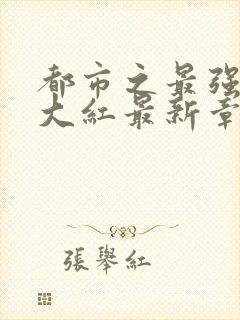 都市之最强
大紅最新章
張舉紅